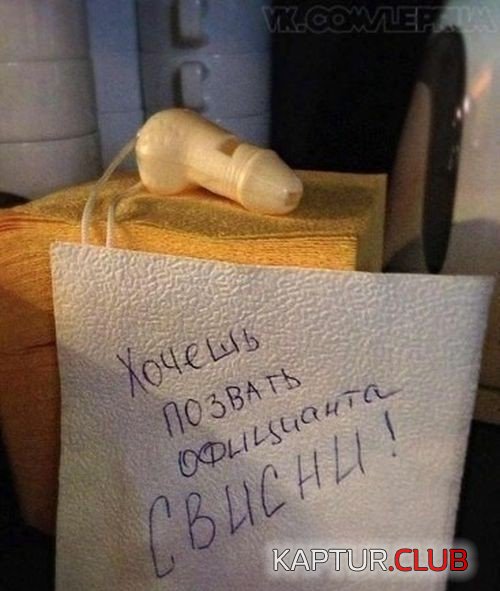 VK.COM/LEPRUM
Хочешь
позвать
официанта
СВИСНИ!
KAPTUR.CLUB